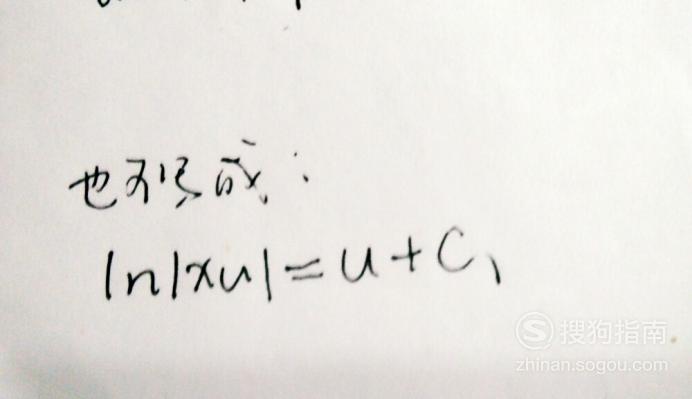 也可写成：
ln|xu|=u+C₁
搜狗指南
zhinan.sogou.com